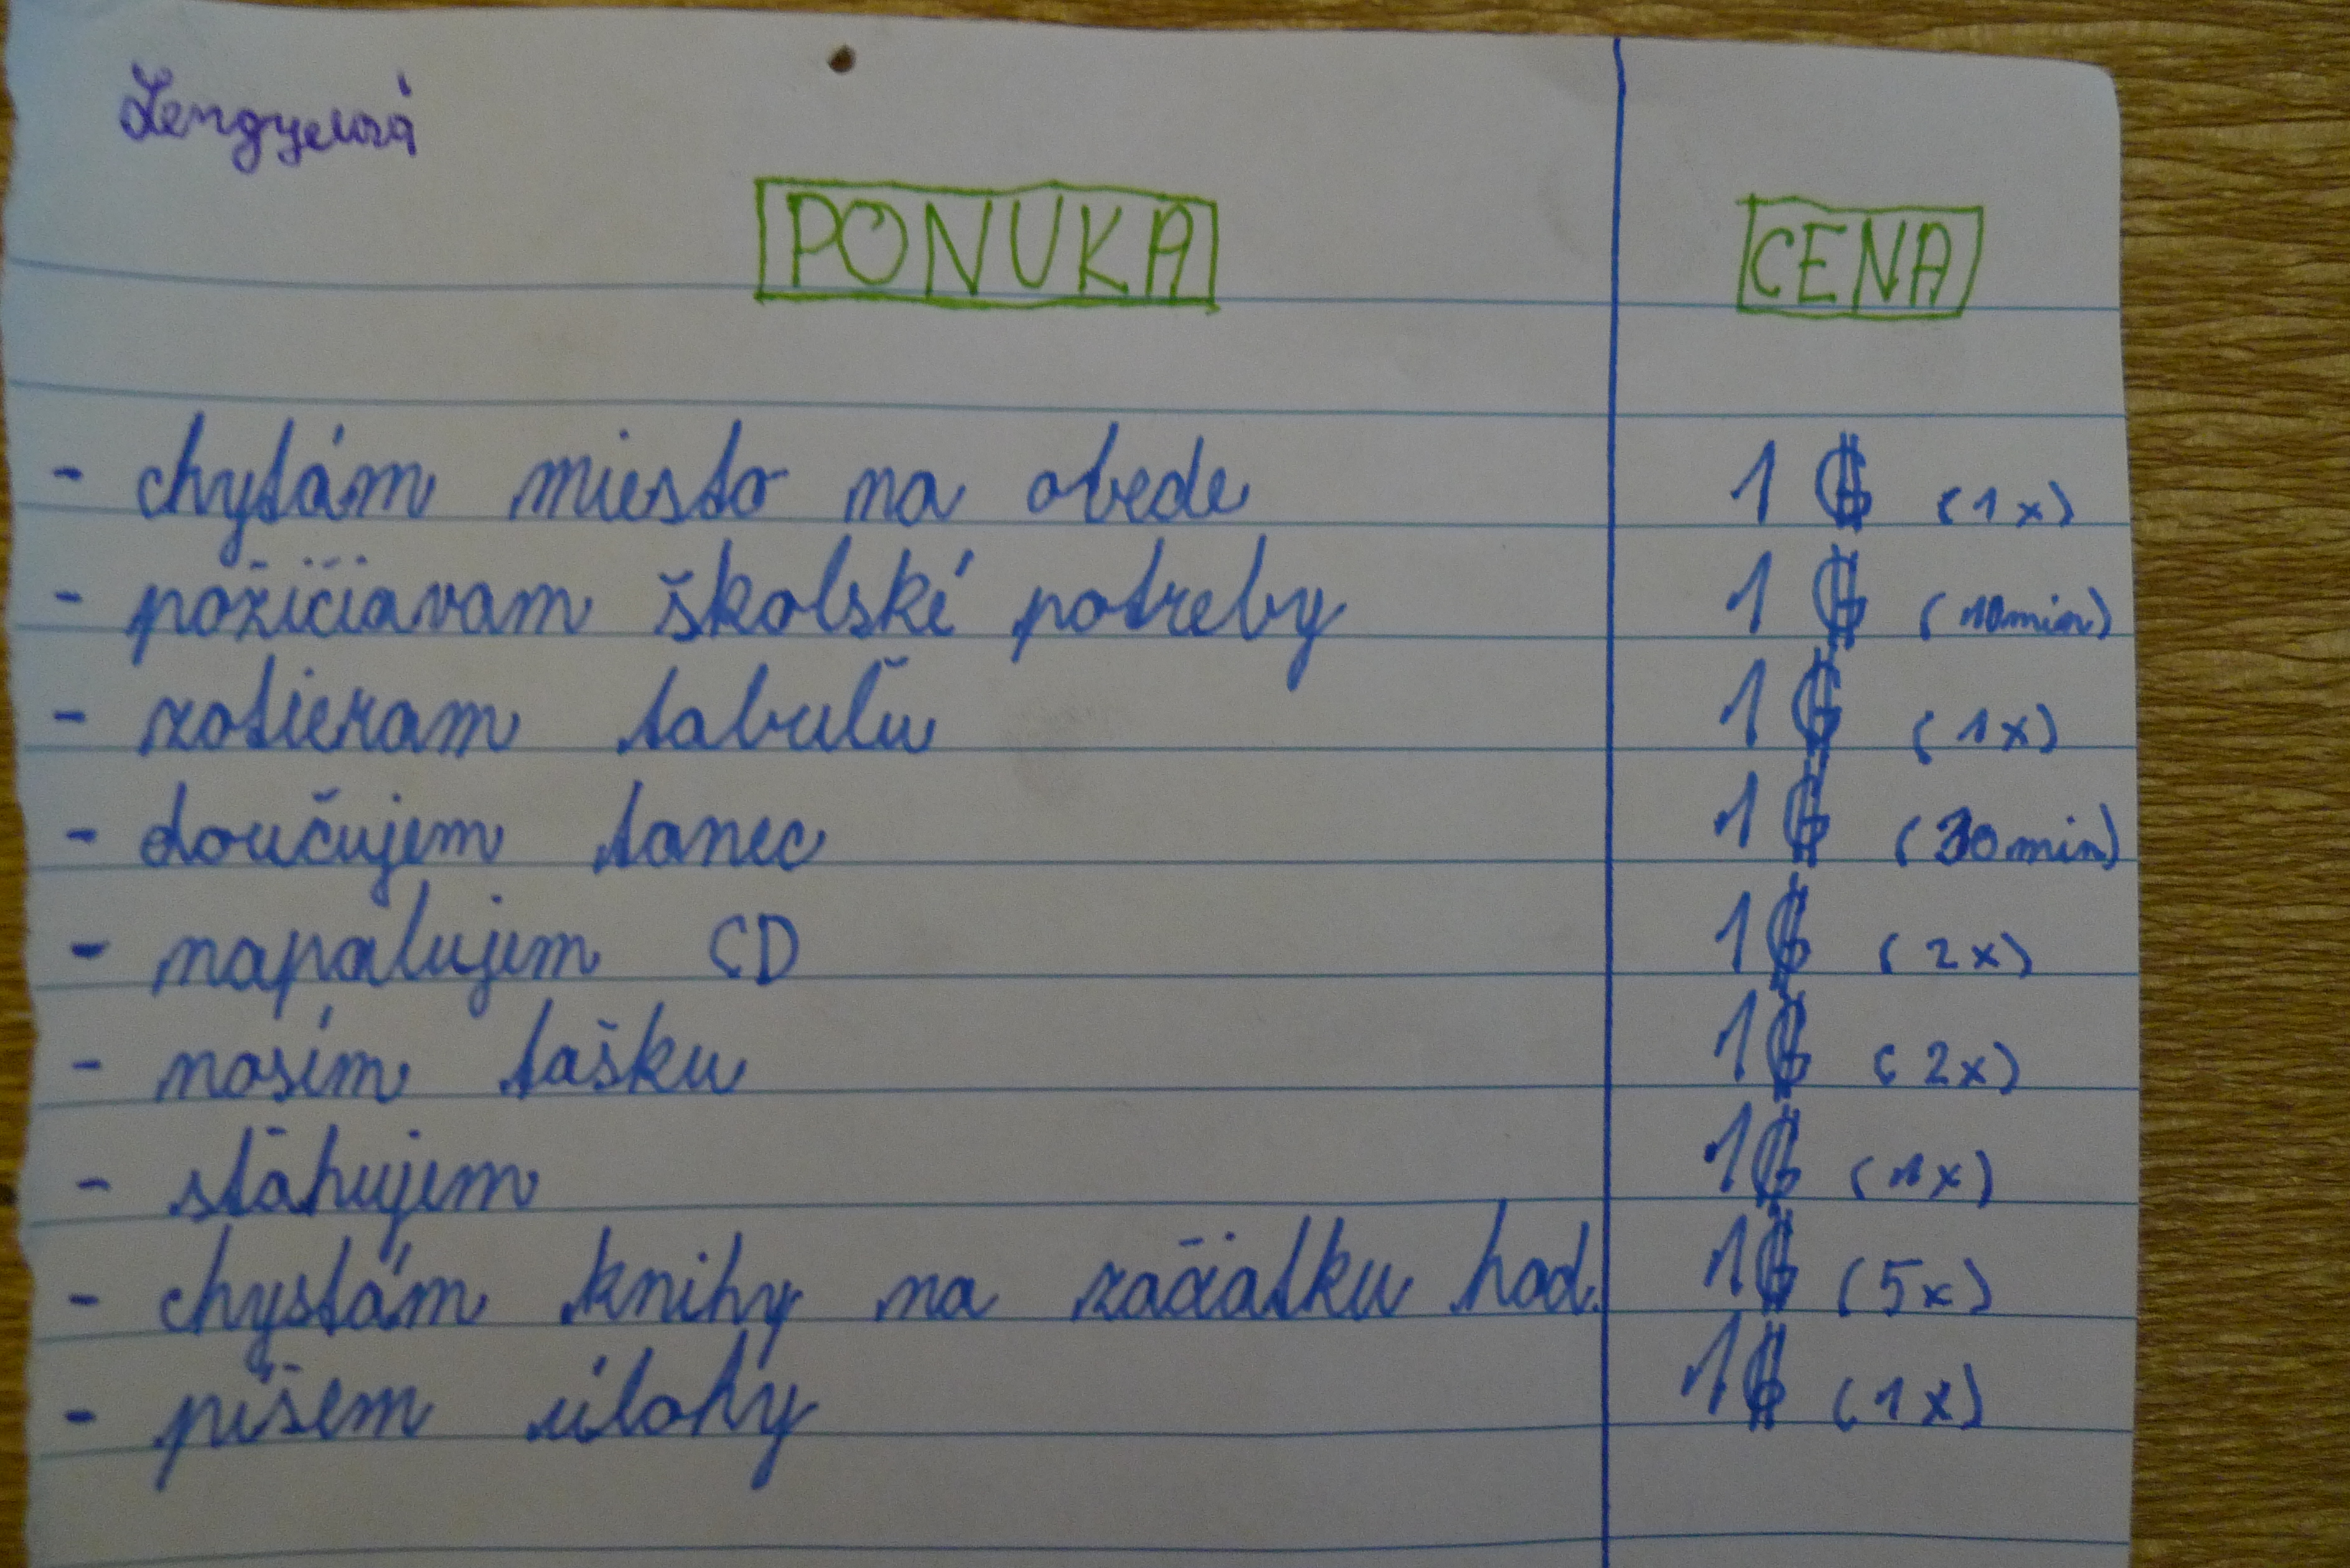 Lengyelová
PONUKA CENA
- chytám miesto na obede 1 $ (1x)
- požičiavam školské potreby 1 $ (10min)
- zotieram tabuľu 1 $ (1x)
- doučujem tanec 1 $ (30min)
- napalujem CD 1 $ (2x)
- nosím tašku 1 $ (2x)
- sťahujem 1 $ (1x)
- chystám knihy na začiatku hod. 1 $ (5x)
- píšem úlohy 1 $ (1x)